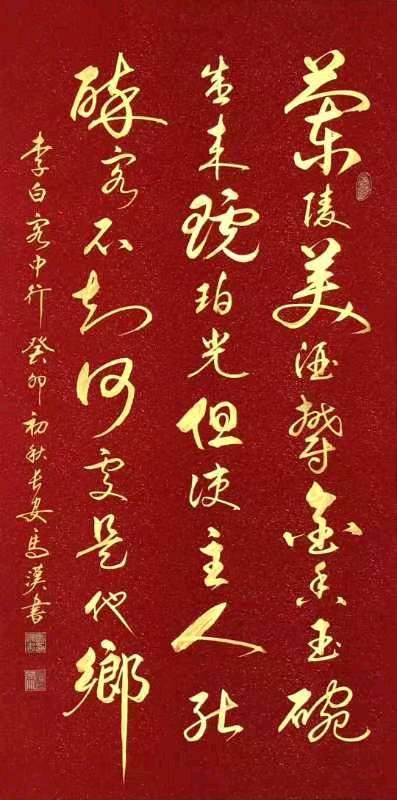 蘭陵美酒鬱金香玉碗
盛来琥珀光但使主人能
醉客不知何處是他鄉
李白客中行癸卯初秋長安馬漢書